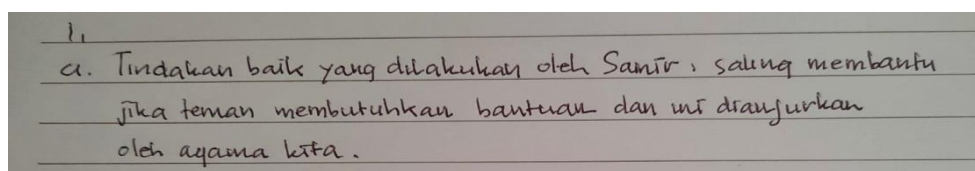 1.
a. Tindakan baik yang dilakukan oleh Samir, saling membantu
jika teman membutuhkan bantuan dan ini dianjurkan
oleh agama kita.